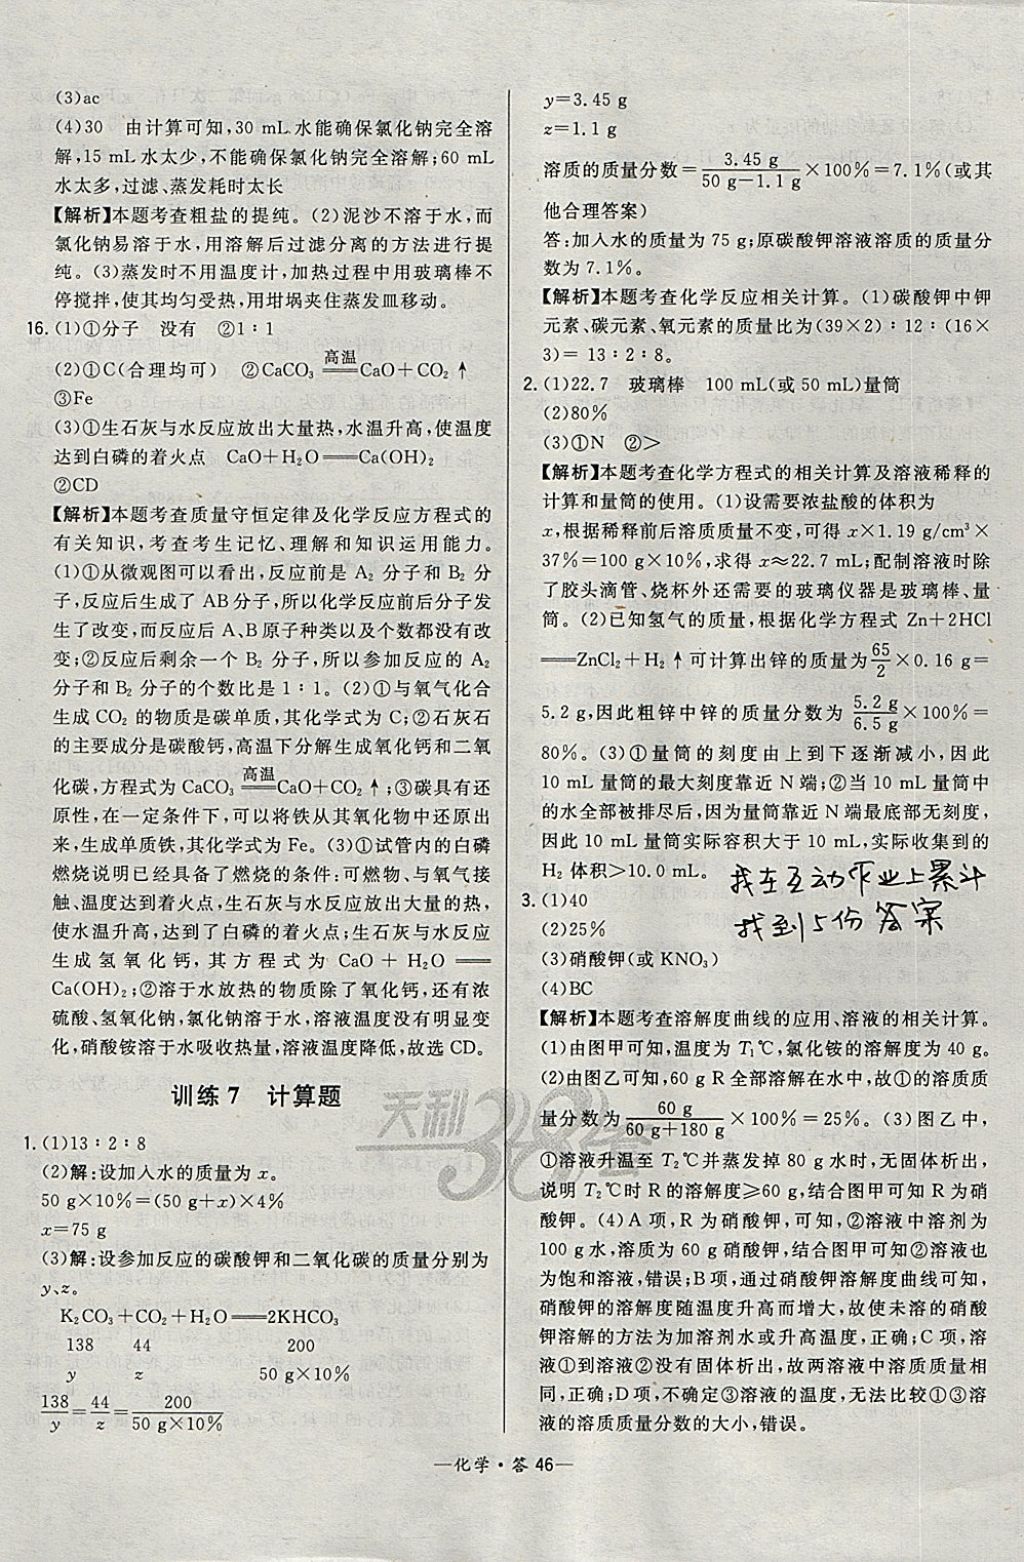 (3)ac
(4)30　由计算可知,30 mL水能确保氯化钠完全溶
解,15 mL水太少,不能确保氯化钠完全溶解;60 mL
水太多,过滤、蒸发耗时太长
【解析】本题考查粗盐的提纯。(2)泥沙不溶于水,而
氯化钠易溶于水,用溶解后过滤分离的方法进行提
纯。(3)蒸发时不用温度计,加热过程中用玻璃棒不
停搅拌,使其均匀受热,用坩埚夹住蒸发皿移动。
16.(1)①分子　没有　②1∶1
(2)①C(合理均可)　②CaCO₃ 高温══ CaO+CO₂↑
③Fe
(3)①生石灰与水反应放出大量热,水温升高,使温度
达到白磷的着火点　CaO+H₂O══Ca(OH)₂
②CD
【解析】本题考查质量守恒定律及化学反应方程式的
有关知识,考查考生记忆、理解和知识运用能力。
(1)①从微观图可以看出,反应前是 A₂ 分子和 B₂ 分
子,反应后生成了 AB分子,所以化学反应前后分子发
生了改变,而反应后 A、B原子种类以及个数都没有改
变;②反应后剩余一个 B₂ 分子,所以参加反应的 A₂
分子和 B₂ 分子的个数比是 1∶1。(2)①与氧气化合
生成 CO₂ 的物质是碳单质,其化学式为 C;②石灰石
的主要成分是碳酸钙,高温下分解生成氧化钙和二氧
化碳,方程式为 CaCO₃ 高温══ CaO+CO₂↑;③碳具有还
原性,在一定条件下,可以将铁从其氧化物中还原出
来,生成单质铁,其化学式为 Fe。(3)①试管内的白磷
燃烧说明已经具备了燃烧的条件:可燃物、与氧气接
触、温度达到着火点,生石灰与水反应放出大量的热,
使水温升高,达到了白磷的着火点;生石灰与水反应
生成氢氧化钙,其方程式为 CaO + H₂O ══
Ca(OH)₂;②溶于水放热的物质除了氧化钙,还有浓
硫酸、氢氧化钠,氯化钠溶于水,溶液温度没有明显变
化,硝酸铵溶于水吸收热量,溶液温度降低,故选 CD。
训练 7　计算题
1.(1)13∶2∶8
(2)解:设加入水的质量为 x。
50 g×10%=(50 g+x)×4%
x=75 g
(3)解:设参加反应的碳酸钾和二氧化碳的质量分别为
y、z。
K₂CO₃+CO₂+H₂O══2KHCO₃
138　44　200
y　z　50 g×10%
138/y=44/z=200/(50 g×10%)
y=3.45 g
z=1.1 g
溶质的质量分数=3.45 g/(50 g-1.1 g)×100%=7.1%(或其
他合理答案)
答:加入水的质量为 75 g;原碳酸钾溶液溶质的质量分
数为 7.1%。
【解析】本题考查化学反应相关计算。(1)碳酸钾中钾
元素、碳元素、氧元素的质量比为(39×2)∶12∶(16×
3)= 13∶2∶8。
2.(1)22.7　玻璃棒　100 mL(或 50 mL)量筒
(2)80%
(3)①N　②>
【解析】本题考查化学方程式的相关计算及溶液稀释的
计算和量筒的使用。(1)设需要浓盐酸的体积为
x,根据稀释前后溶质质量不变,可得 x×1.19 g/cm³×
37%=100 g×10%,求得 x≈22.7 mL;配制溶液时除
了胶头滴管、烧杯外还需要的玻璃仪器是玻璃棒、量
筒。(2)已知氢气的质量,根据化学方程式 Zn+2HCl
══ZnCl₂+H₂↑可计算出锌的质量为65/2×0.16 g=
5.2 g,因此粗锌中锌的质量分数为 5.2 g/6.5 g×100%=
80%。(3)①量筒的刻度由上到下逐渐减小,因此
10 mL 量筒的最大刻度靠近 N 端;②当 10 mL 量筒中
的水全部被排尽后,因为量筒靠近 N 端最底部无刻度,
因此 10 mL 量筒实际容积大于 10 mL,实际收集到的
H₂ 体积>10.0 mL。
我在互动作业上累计
找到5份答案
3.(1)40
(2)25%
(3)硝酸钾(或 KNO₃)
(4)BC
【解析】本题考查溶解度曲线的应用、溶液的相关计算。
(1)由图甲可知,温度为 T₁℃,氯化铵的溶解度为 40 g。
(2)由图乙可知,60 g R 全部溶解在水中,故①的溶质质
量分数为 60 g/(60 g+180 g)×100%=25%。(3)图乙中,
①溶液升温至 T₂℃并蒸发掉 80 g 水时,无固体析出,
说明 T₂℃时 R 的溶解度⩾60 g,结合图甲可知 R为硝
酸钾。(4)A 项,R 为硝酸钾,可知,②溶液中溶剂为
100 g水,溶质为 60 g 硝酸钾,结合图甲可知②溶液也
为饱和溶液,错误;B项,通过硝酸钾溶解度曲线可知,
硝酸钾的溶解度随温度升高而增大,故使未溶的硝酸
钾溶解的方法为加溶剂水或升高温度,正确;C项,溶
液①到溶液②没有固体析出,故两溶液中溶质质量相
同,正确;D项,不确定③溶液的温度,无法比较①③溶
液的溶质质量分数的大小,错误。
天利38套
—化学·答 46—